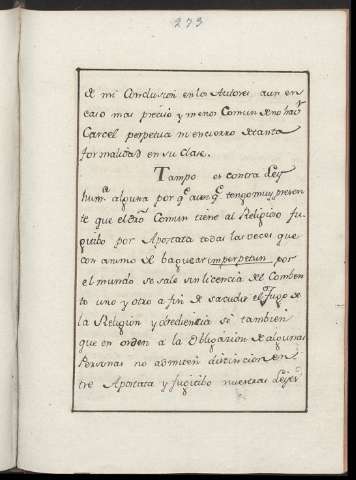 273
de mi Conclusion en los Autores aun en
caso mas preciso y menos Comun de no hav.r
Carcel perpetua ni encierro de tanta
formalidad en su clase.
Tampo es contra Ley
hum.a alguna por q.e aunq.e tengo muy presen
te que el dro Comun tiene al Religioso fu
gitibo por Apostata todas las veces que
con animo de baguear imperpetun por
el mundo se sale sin licencia del Comben
to uno y otro a fin de sacudir el Jugo de
la Religion y obediencia se tambien
que en orden a la Obligazion de algunas
Personas no admiten distincion en
tre Apostata y fugitibo nuestras Leyes